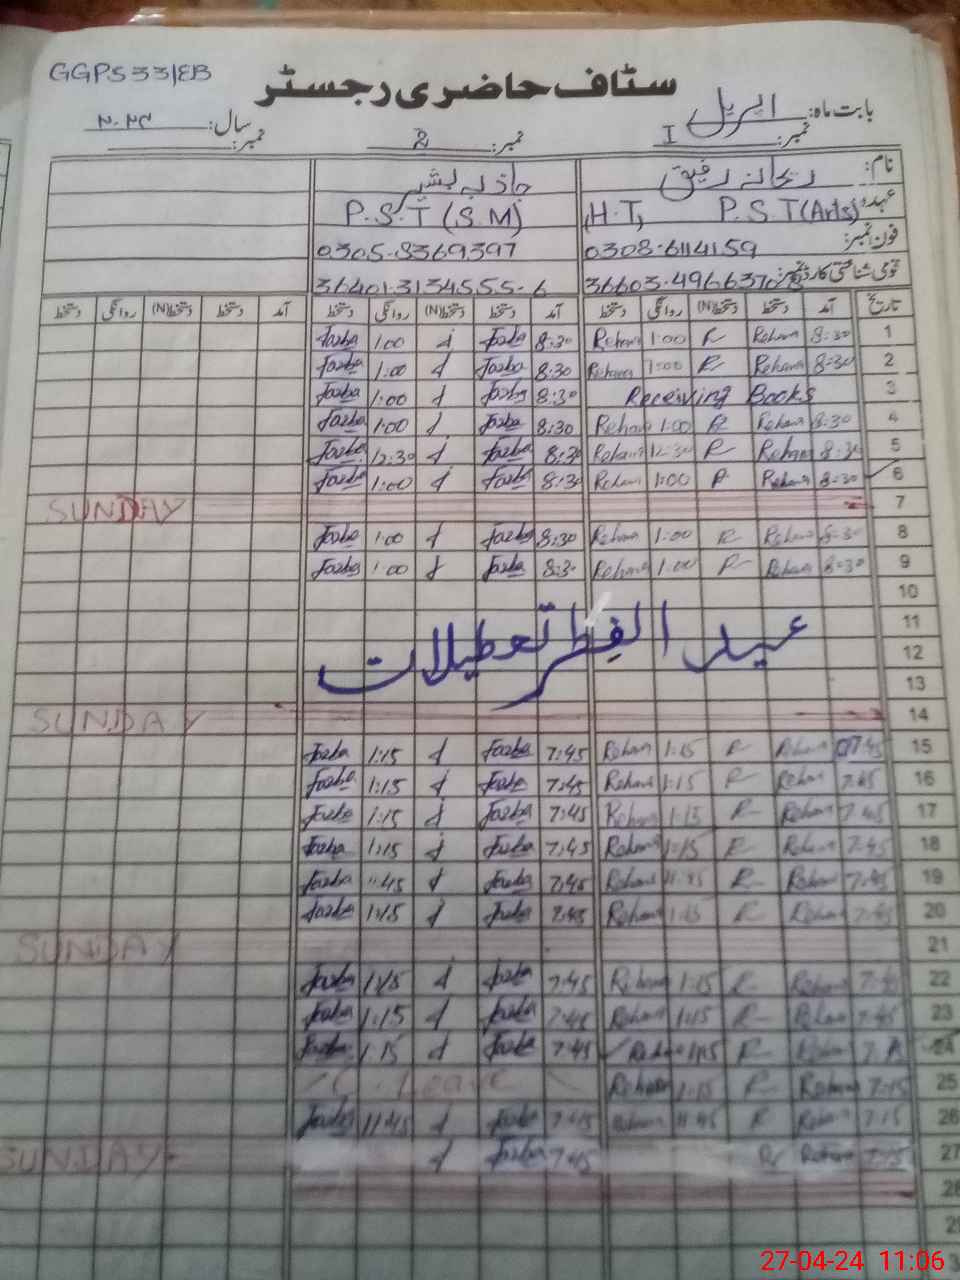 GGPS 33/EB
سٹاف حاضری رجسٹر
بابت ماہ: اپریل سال: ۲۰۲۴
نمبر: 1 نمبر: 2 نمبر:
نام: ریحانہ رفیق جاذبہ بشیر
عہدہ: P.S.T(Arts) (H.T) P.S.T (S.M)
فون نمبر: 0308-6114159 0305-8369397
قومی شناختی کارڈ نمبر: 36401-3134555-6
تاریخ آمد دستخط دستخط(N) روانگی دستخط آمد دستخط دستخط(N) روانگی دستخط آمد دستخط دستخط(N) روانگی دستخط
Jazba 1:00 J Jazba 8:30 Rehana 1:00 R Rehana 8:30 1
Jazba 1:00 J Jazba 8:30 Rehana 1:00 R Rehana 8:30 2
Jazba 1:00 J Jazba 8:30 Receiving Books 3
Jazba 1:00 J Jazba 8:30 Rehana 1:00 R Rehana 8:30 4
Jazba 12:30 J Jazba 8:30 Rehana 12:30 R Rehana 8:30 5
Jazba 1:00 J Jazba 8:30 Rehana 1:00 R Rehana 8:30 6
SUNDAY 7
Jazba 1:00 J Jazba 8:30 Rehana 1:00 R Rehana 8:30 8
Jazba 1:00 J Jazba 8:30 Rehana 1:00 R Rehana 8:30 9
10
11
عید الفِطر تعطیلات
12
13
SUNDAY 14
Jazba 1:15 J Jazba 7:45 Rehana 1:15 R Rehana 7:45 15
Jazba 1:15 J Jazba 7:45 Rehana 1:15 R Rehana 7:45 16
Jazba 1:15 J Jazba 7:45 Rehana 1:15 R Rehana 7:45 17
Jazba 1:15 J Jazba 7:45 Rehana 1:15 R Rehana 7:45 18
Jazba 11:45 J Jazba 7:45 Rehana 11:45 R Rehana 7:45 19
Jazba 1:15 J Jazba 7:45 Rehana 1:15 R Rehana 7:45 20
SUNDAY 21
Jazba 1:15 J Jazba 7:45 Rehana 1:15 R Rehana 7:45 22
Jazba 1:15 J Jazba 7:45 Rehana 1:15 R Rehana 7:45 23
Jazba 1:15 J Jazba 7:45 Rehana 1:15 R Rehana 24
C. Leave Rehana 1:15 R Rehana 25
Jazba 11:45 J Jazba Rehana 11:45 R Rehana 26
SUNDAY J Jazba 7:45 R Rehana 27
28
27-04-24 11:06